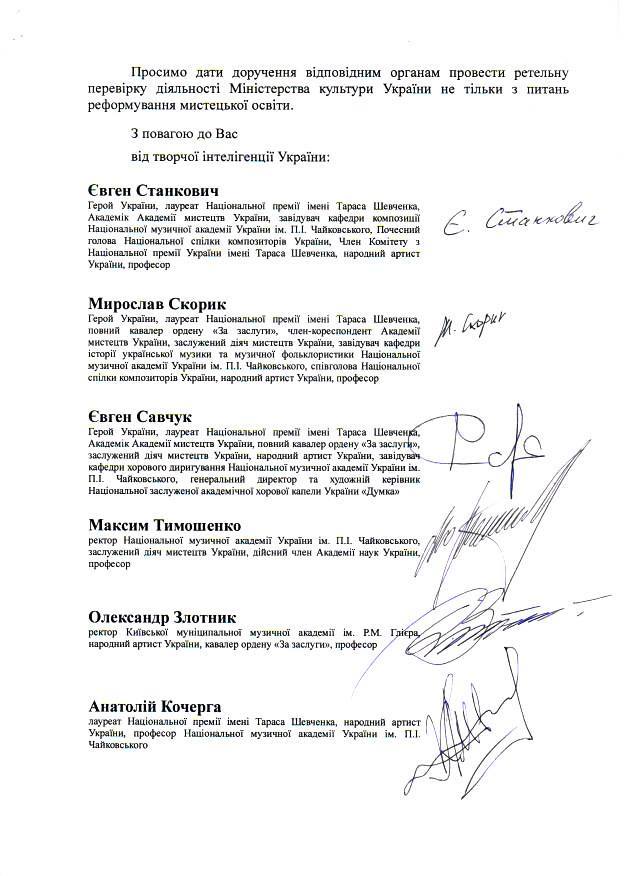 Просимо дати доручення відповідним органам провести ретельну
перевірку діяльності Міністерства культури України не тільки з питань
реформування мистецької освіти.
З повагою до Вас
від творчої інтелігенції України:
Євген Станкович
Герой України, лауреат Національної премії імені Тараса Шевченка,
Академік Академії мистецтв України, завідувач кафедри композиції
Національної музичної академії України ім. П.І. Чайковського, Почесний
голова Національної спілки композиторів України, Член Комітету з
Національної премії України імені Тараса Шевченка, народний артист
України, професор
Є. Станкович
Мирослав Скорик
Герой України, лауреат Національної премії імені Тараса Шевченка,
повний кавалер ордену «За заслуги», член-кореспондент Академії
мистецтв України, заслужений діяч мистецтв України, завідувач кафедри
історії української музики та музичної фольклористики Національної
музичної академії України ім. П.І. Чайковського, співголова Національної
спілки композиторів України, народний артист України, професор
М. Скорик
Євген Савчук
Герой України, лауреат Національної премії імені Тараса Шевченка,
Академік Академії мистецтв України, повний кавалер ордену «За заслуги»,
заслужений діяч мистецтв України, народний артист України, завідувач
кафедри хорового диригування Національної музичної академії України ім.
П.І. Чайковського, генеральний директор та художній керівник
Національної заслуженої академічної хорової капели України «Думка»
Максим Тимошенко
ректор Національної музичної академії України ім. П.І. Чайковського,
заслужений діяч мистецтв України, дійсний член Академії наук України,
професор
Олександр Злотник
ректор Київської муніципальної музичної академії ім. Р.М. Глієра,
народний артист України, кавалер ордену «За заслуги», професор
Анатолій Кочерга
лауреат Національної премії імені Тараса Шевченка, народний артист
України, професор Національної музичної академії України ім. П.І.
Чайковського